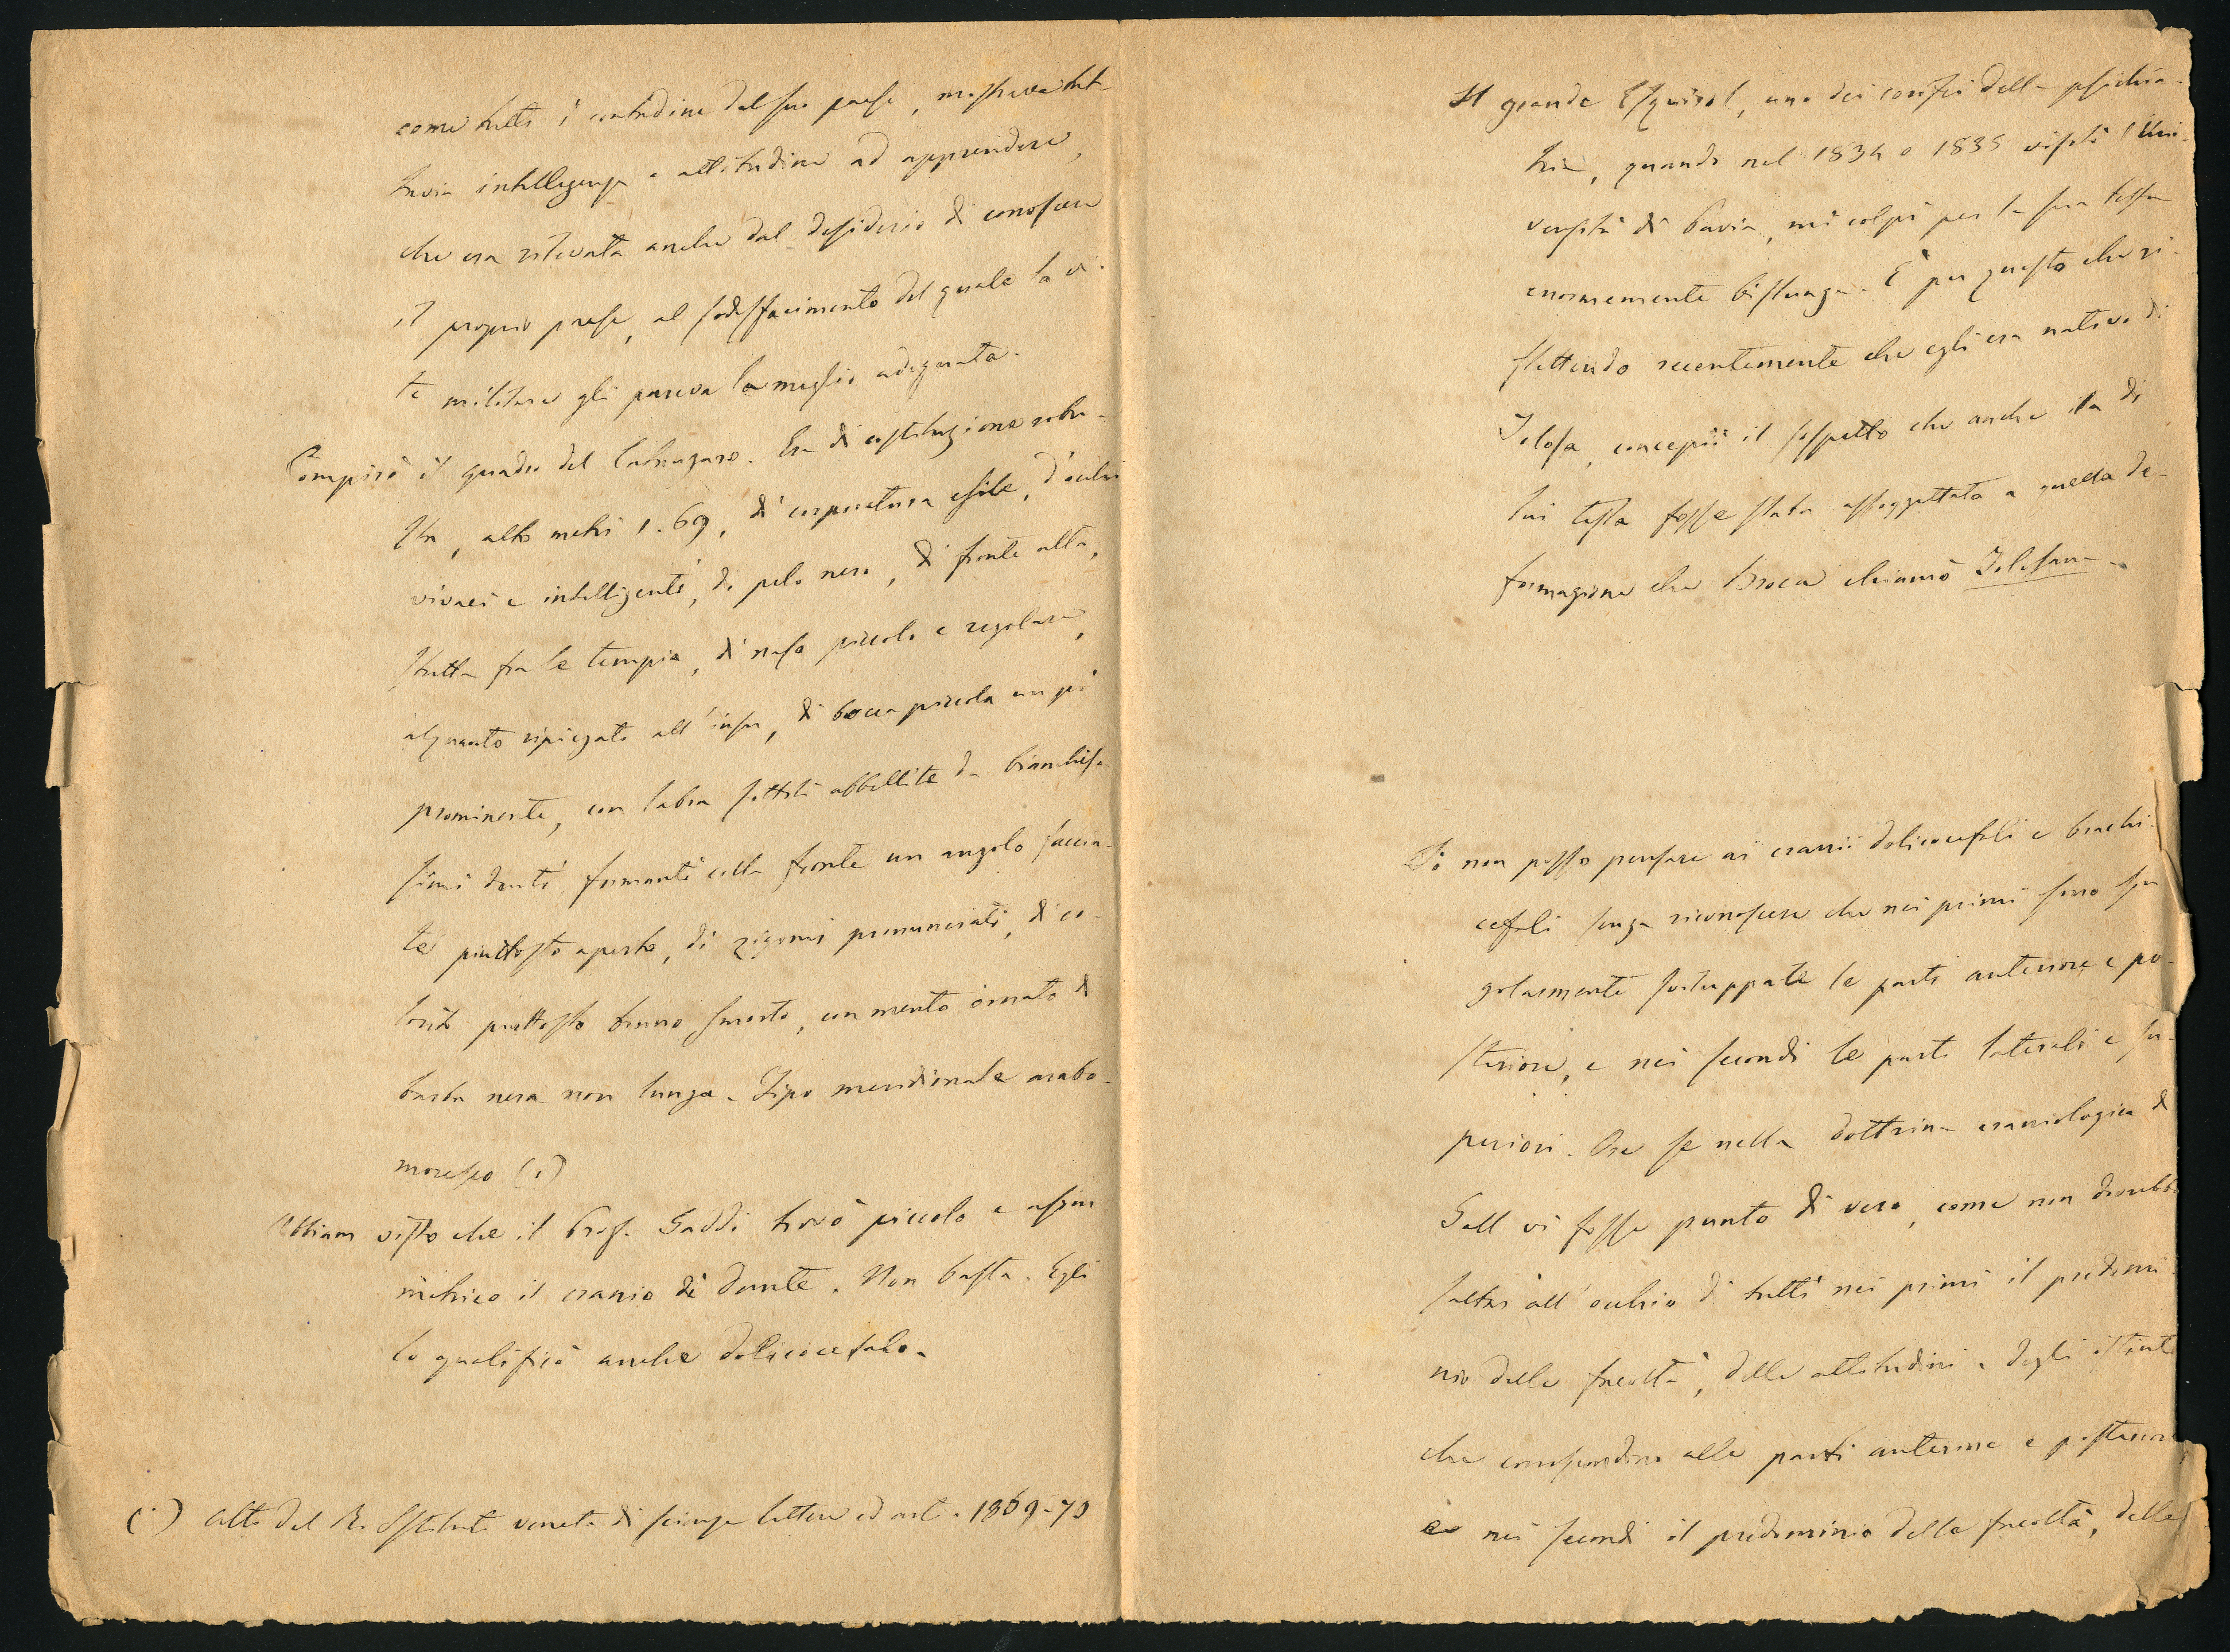 come tutti i contadini del suo paese, mostrava tut-
tavia intelligenza e attitudine ad apprendere,
che era rilevata anche dal desiderio di conoscere
il proprio paese, al sodisfacimento del quale la vi-
ta militare gli pareva la meglio adeguata.
Compirò il quadro del . Era di costituzione robu-
sta, alto metri 1.69, di corporatura esile, d'occhi
vivaci e intelligenti, di pelo nero, di fronte alta,
stretta fra le tempia, di naso piccolo e regolare,
alquanto ripiegato all'insu, di bocca piccola un pò
prominente, con labra sottili abbellite da bianchis-
simi denti, formanti colla fronte un angolo faccia-
le piuttosto aperto, di zigomi pronunciati, di co-
lorito piuttosto bruno smorto, con mento ornato di
barba nera non lunga. Tipo meridionale arabo-
moresco (1)
Abbiam visto che il Prof. Gaddi trovò piccolo e asim
metrico il cranio di Dante. Non basta. Egli
lo qualificò anche dolicocefalo.
(1) Atti del R. Istituto veneto di scienze lettere ed arti. 1869-70
Il grande Esquirol, uno dei corifei della psichia-
tria, quando nel 1834 o 1835 visitò l'Uni-
versità di Pavia, mi colpì per la sua testa
enormemente bislunga. È per questo che ri-
flettendo recentemente che egli era nativo di
Tolosa, concepii il sospetto che anche la di
lui testa fosse stata assoggettata a quella de-
formazione che Broca chiamò Tolosana.
Io non posso pensare ai cranii dolicocefali e brachi-
cefali senza riconoscere che nei primi sono
golarmente sviluppate le parti anteriore e po-
steriore, e nei secondi le parti laterali e su-
periori. Ora se nella dottrina craniologica di
Gall vi fosse punto di vero, come non dovrebbe
saltar all'occhio di tutti nei primi il predomi
nio delle facoltà, delle attitudini e degli istinti
che corrispondono alle parti anteriore e posteriore
e nei secondi il predominio della facoltà, delle